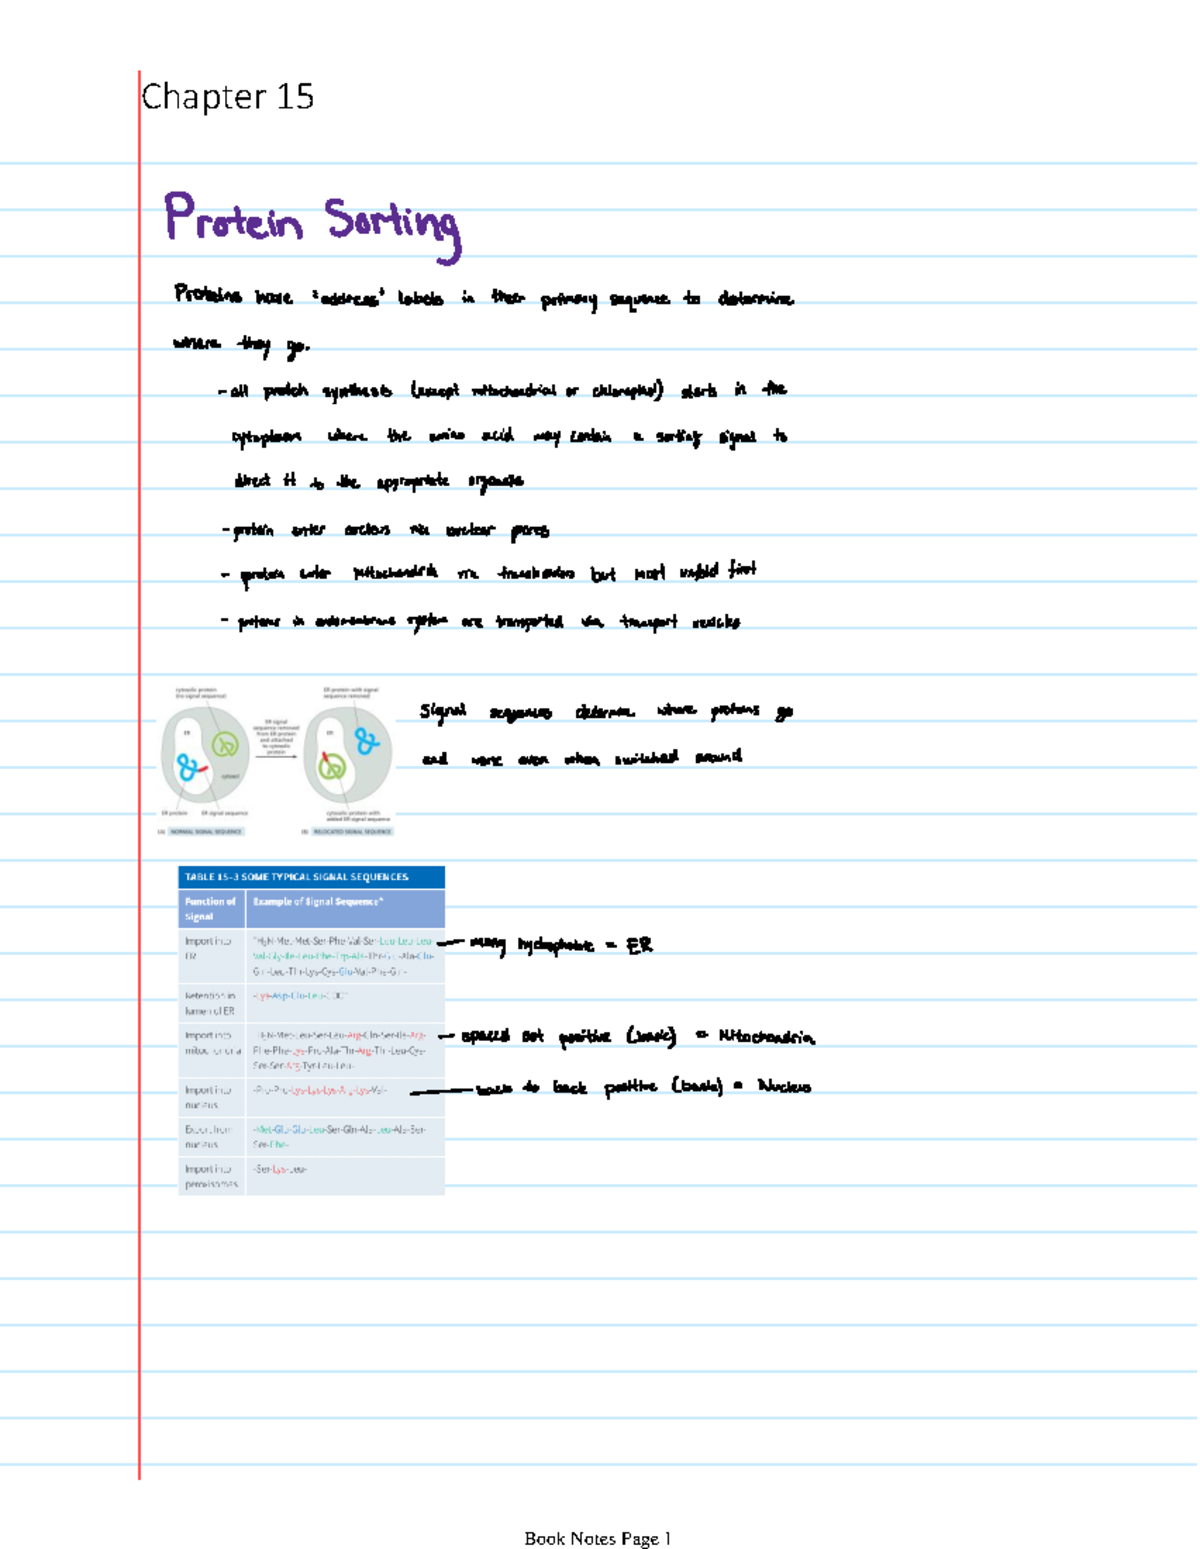 Chapter 15
Protein Sorting
Proteins have "address" labels in their primary sequence to determine
where they go.
- all protein synthesis (except mitochondrial or chloroplast) starts in the
cytoplasm where the amino acid may contain a sorting signal to
direct it to the appropriate organelle
- protein enter nucleus via nuclear pores
- protein enter mitochondria via translocators but must unfold first
- proteins in endomembrane system are transported via transport vesicles
cytosolic protein
(no signal sequence)
ER protein with signal
sequence removed
ER signal
sequence removed
from ER protein
and attached
to cytosolic
protein
ER
ER
cytosol
ER protein
ER signal sequence
cytosolic protein with
added ER signal sequence
(A) NORMAL SIGNAL SEQUENCE
(B) RELOCATED SIGNAL SEQUENCE
Signal sequences determine where proteins go
and work even when switched around
TABLE 15-3 SOME TYPICAL SIGNAL SEQUENCES
Function of
Signal
Example of Signal Sequence*
Import into
ER
-Met-Met-Ser-Phe-Val-Ser-Leu-Leu-Leu-
Val-Gly-Ile-Leu-Phe-Trp-Ala-Thr- -Ala-Glu-
Gln-Leu-Thr-Lys-Cys-Glu-Val-Phe-Gln-
many hydrophobic = ER
Retention in
lumen of ER
-Lys-Asp-Glu-Leu-
Import into
mitochondria
-Met-Leu-Ser-Leu-Arg-Gln-Ser-Ile-Arg-
Phe-Phe-Lys-Pro-Ala-Thr-Arg-Thr-Leu-Cys-
Ser-Ser-Arg-Tyr-Leu-Leu-
spaced out positive (basic) = Mitochondria
Import into
nucleus
-Pro-Pro-Lys-Lys-Lys-Arg-Lys-Val-
back to back positive (basic) = Nucleus
Export from
nucleus
-Met-Glu-Glu-Leu-Ser-Gln-Ala-Leu-Ala-Ser-
Ser-Phe-
Import into
peroxisomes
-Ser-Lys-Leu-
Book Notes Page 1